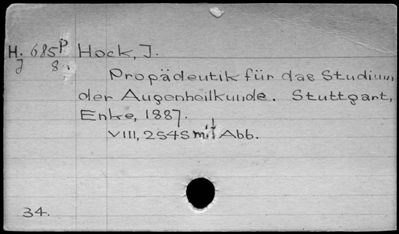 H. 685 P Hock, J.
J 8.
Propädeutik für das Studium
der Augenheilkunde. Stuttgart,
Enke, 1887.
VIII, 254S mit Abb.
34.